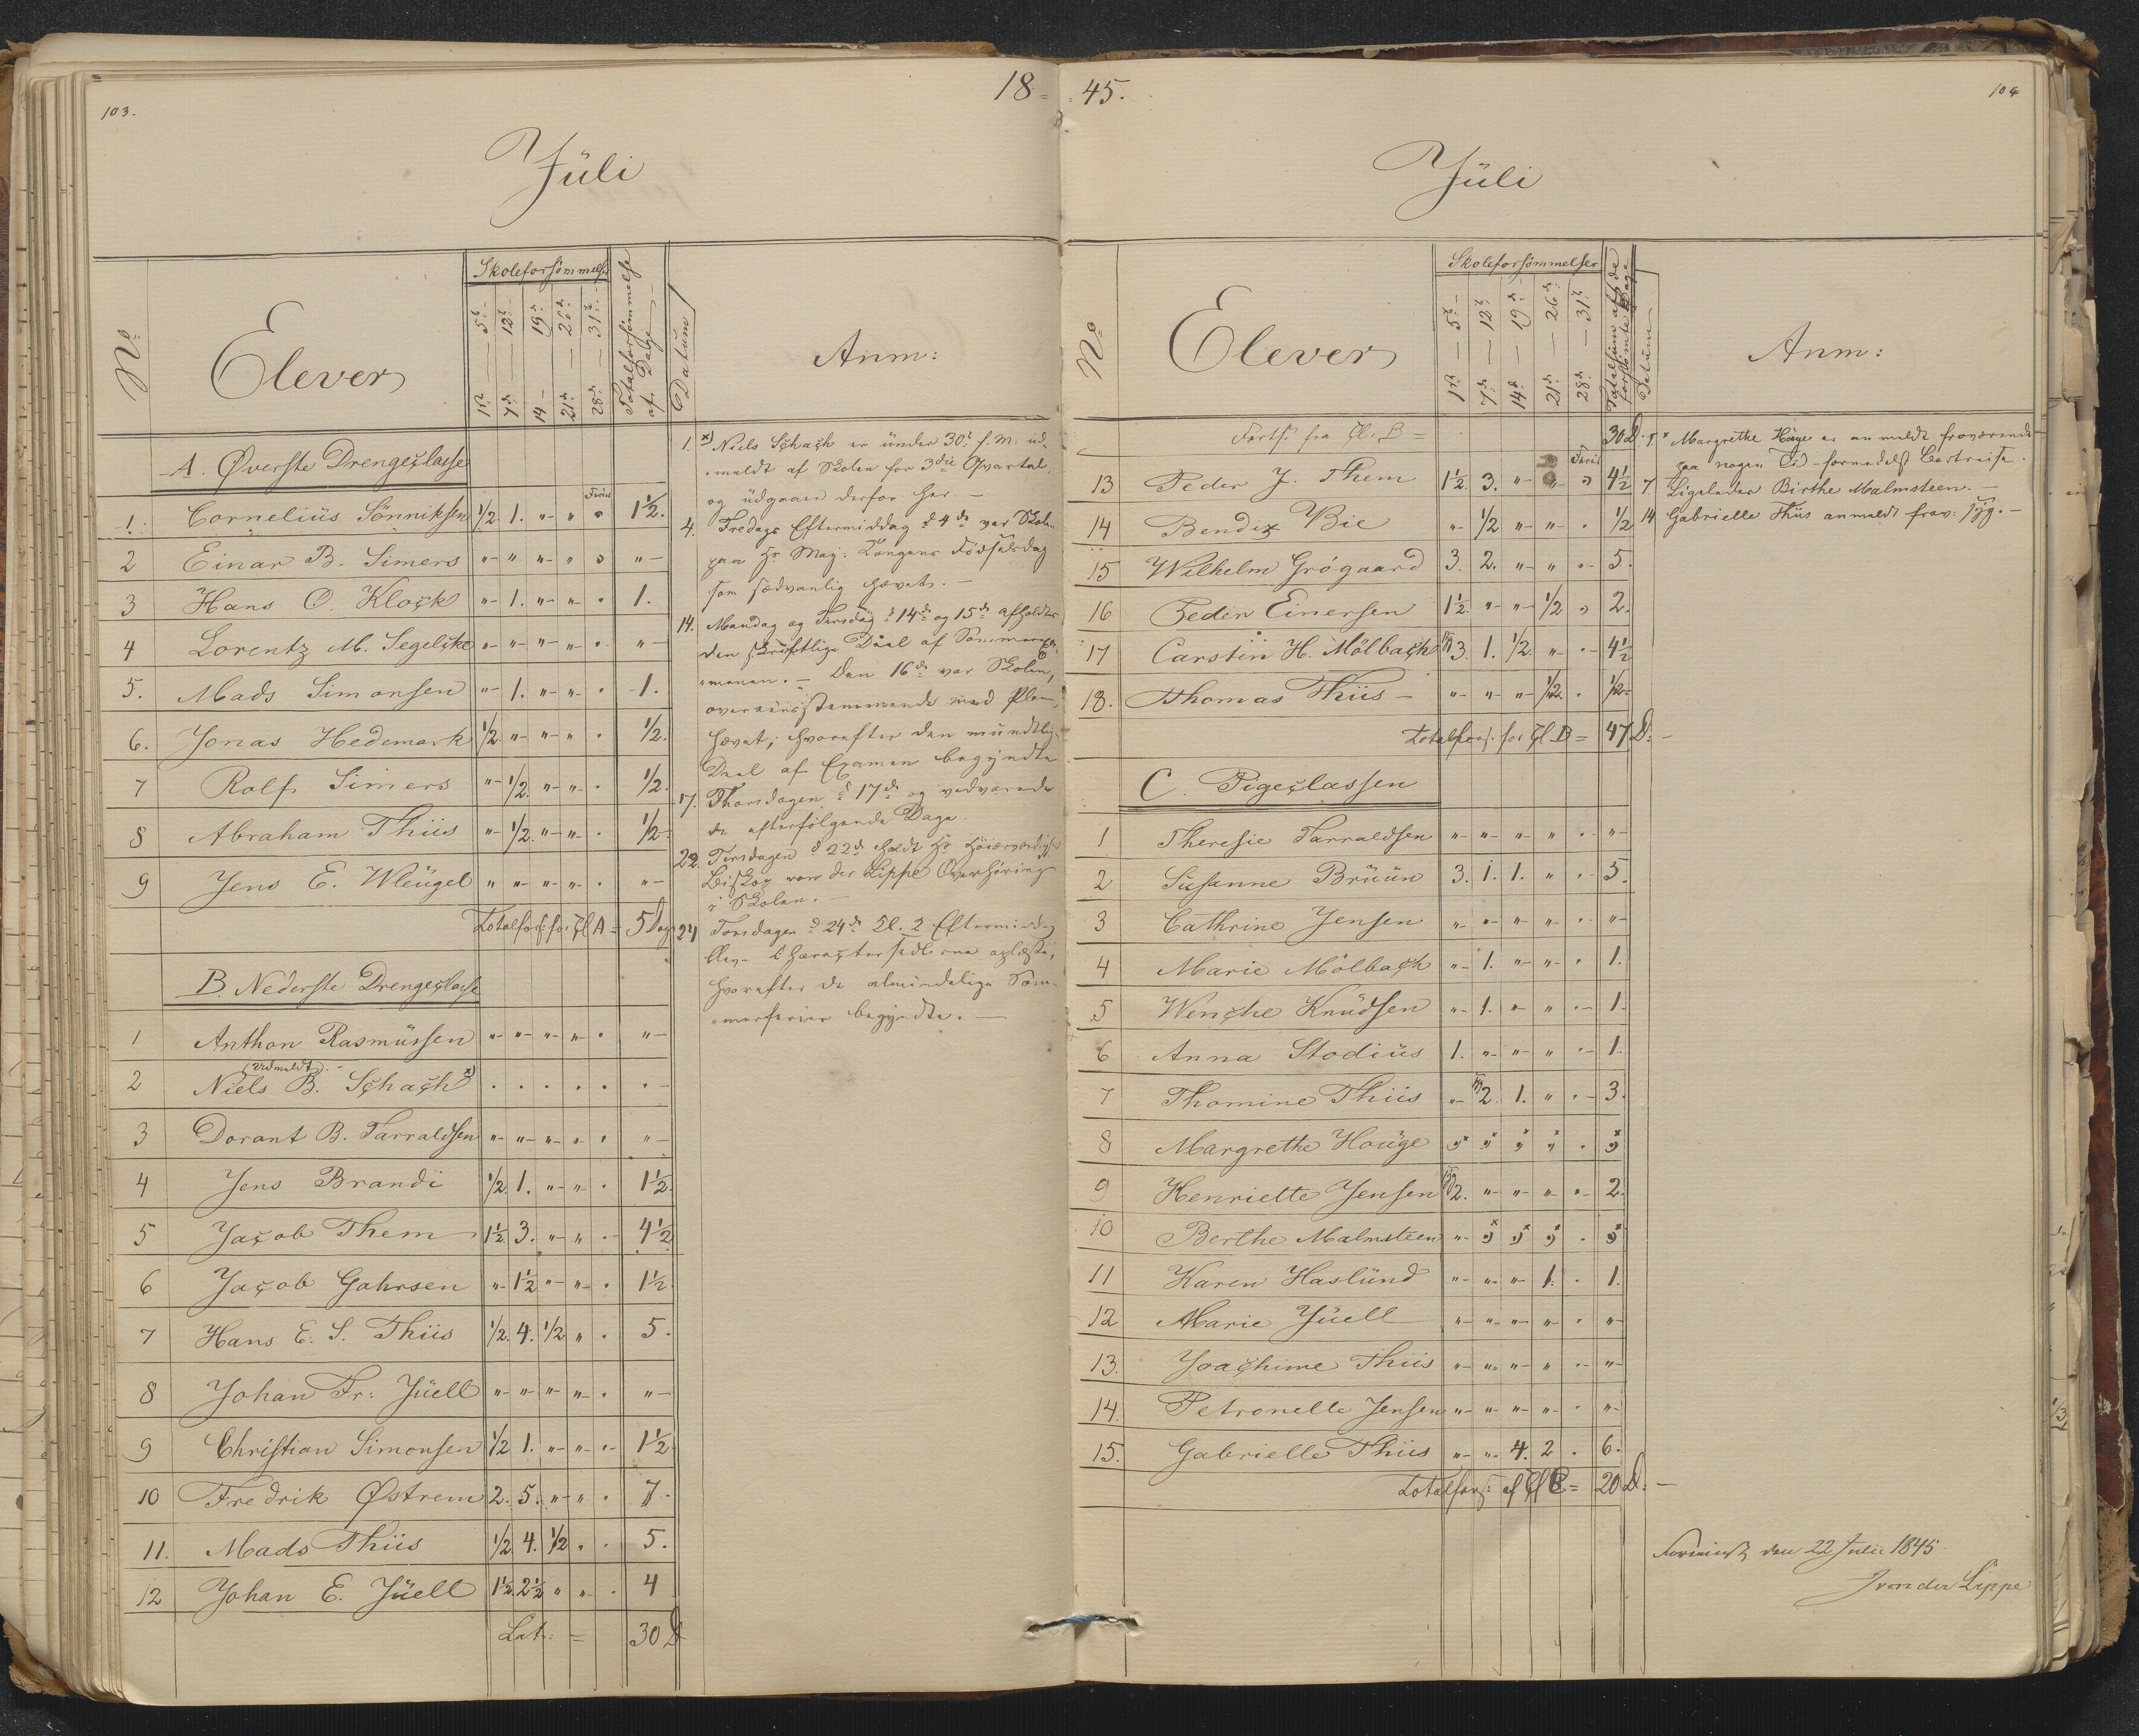 103.
18 =
Jüli
No:
Elever
Skoleforsömmelser
1ste — 5te
7de — 12te
14 — 19de
21de — 26de
28de — 31te
Totalforsömmelse
af Dage
Datum
Anm:
A. Øverste Drengeclasse
1. Cornelius Sönniksen 1/2 1. " " " 1 1/2.
2 Einar B. Simers " " " " " "
3 Hans O. Klock " 1. " " " 1.
4 Lorentz M. Segelcke " " " " " "
5. Mads Simonsen " 1. " " " 1.
6. Jonas Hedemark 1/2 " " " " 1/2.
7 Rolf Simers " 1/2. " " " 1/2.
8 Abraham Thiis " 1/2. " " " 1/2
9 Jens E. Wleügel " " " " " "
Totalfors: for Cl A = 5 Dag
B. Nederste Drengeclasse
1 Anthon Rasmüssen " " " " " "
(Udmeldt)
2 Niels B. Schach x) . . . . . .
3 Dorant B. Tarraldsen " " " " " "
4 Jens Brandi 1/2. 1. " " " 1 1/2.
5 Jacob Them 1 1/2 3. " " " 4 1/2
6 Jacob Gahrsen " 1 1/2 " " " 1 1/2.
7 Hans E. S. Thiis 1/2. 4. 1/2 " " 5.
8 Johan Fr: Jüell " " " " " "
9 Christian Simonsen 1/2 1. " " " 1 1/2
10 Fredrik Østrem 2. 5. " " " 7.
11. Mads Thiis 1/2 4. 1/2 " " 5.
12 Johan E. Jüell 1 1/2. 2 1/2 " " " 4
Lat: = 30 D
1. x) Niels Schach er ünder 30te f. M. ud-
meldt af Skolen for 3die Qvartal,
og üdgaaer derfor her. —
4. Fredags Eftermiddag d 4de var Skolen
paa Hs Maj: Kongens Födselsdag
som sædvanlig hævet. —
14. Mandag og Tirsdag d 14de og 15de afholdtes
den skriftlige Deel af Sommerexa-
menen. — Den 16de var Skolen,
overeensstemmende med Planen,
hævet; hvorefter den mündtlige
Deel af Examen begyndte
17. Thorsdagen d 17de og vedvarede
de efterfölgende Dage.
22. Tirsdagen d 22de holdt Hr Höiærværdighed
Biskop von der Lippe Overhöring
i Skolen. —
24 Torsdagen d 24de Kl. 2 Eftermiddag
blev Characteersedlerne oplæste,
hvorefter de almindelige Som-
merferier begyndte. —
45.
104
Jüli
No
Elever
Skoleforsömmelser
1ste — 5te
7de — 12te
14de — 19de
21de — 26de
28de — 31te
Totalsüm af de
forsömte Dage
Datum
Anm:
Forts: fra Cl. B = 30 D.
13 Peder J. Them 1 1/2 3. " " " 4 1/2
14 Bendix Bie " 1/2 " " " 1/2
15 Wilhelm Grögaard 3. 2. " " " 5.
16 Peder Einersen 1 1/2. " " 1/2 " 2.
17 Carsten H. Mölbach 3. 1. 1/2. " " 4 1/2
18. Thomas Thiis " " " 1/2. " 1/2.
Totalfors: for Cl B = 47 D:
C. Pigeclassen
1 Theresie Tarraldsen " " " " " "
2 Susanne Brüün 3. 1. 1. " " 5.
3 Cathrine Jensen " " " " " "
4 Marie Mölbach " 1. " " " 1.
5 Wenche Knüdsen " 1. " " " 1.
6 Anna Stodiüs 1. " " " " 1.
7 Thomine Thiis " 2. 1. " " 3.
8 Margrethe Hoüge " " " " " "
9 Henriette Jensen 2. " " " " 2.
10 Berthe Malmsteen " " " " " "
11 Karen Haslünd " " " 1. " 1.
12 Marie Jüell " " " " " "
13. Joachime Thiis " " " " " "
14. Petronelle Jensen " " " " " "
15. Gabrielle Thiis " " 4. 2 " 6.
Totalfors: af Cl C = 20 D:
Margrethe Höüge er anmeldt fraværende
paa nogen Tid formedelst Bortreise.
7. Ligeledes Birthe Malmsteen. —
14 Gabrielle Thiis anmeldt frav: syg. —
den 22 Julii 1845
J von der Lippe